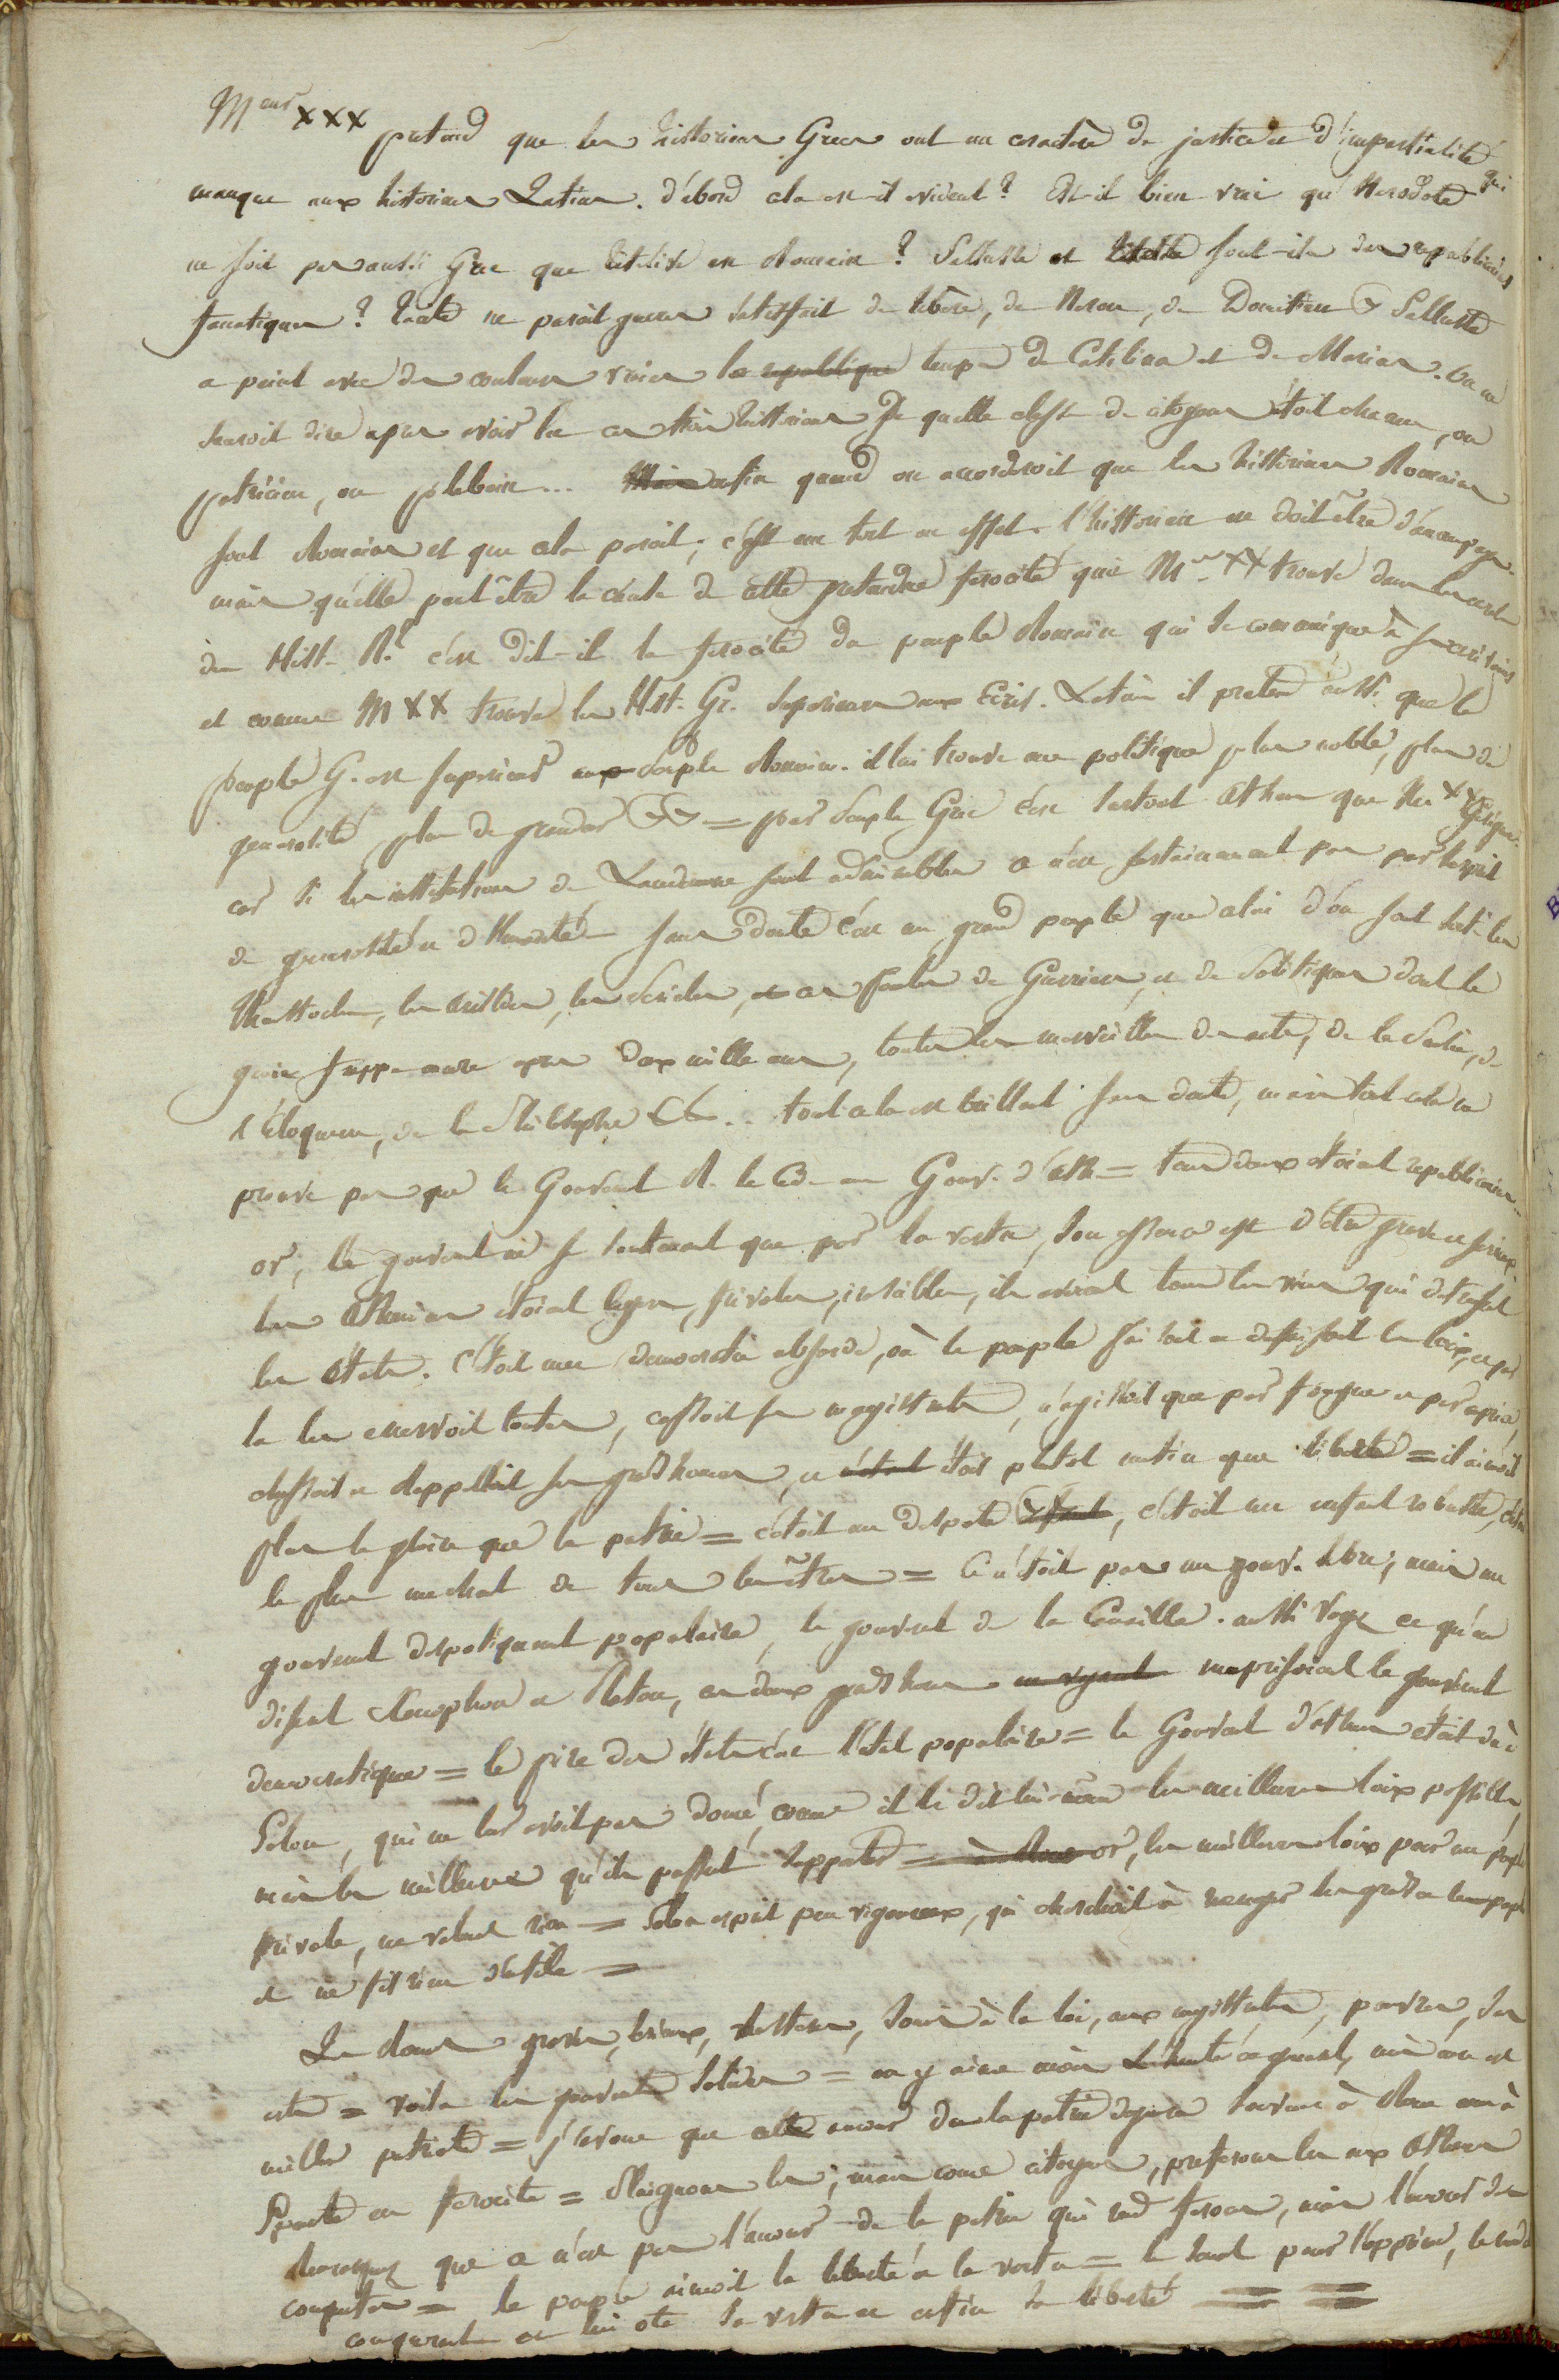 Meur xxx pretend que les historiens Grecs ont un caractère de justice et d'impartialité qui
manque aux historiens Latins. d'abord cela est-il evident? Est-il bien vrai qu'Herodote
ne soit pas aussi Grec que titelive est Romain? Salluste et tacite sont-ils des republicains
fanatiques? tacite ne paroit gueres satisfait de tibere, de Neron, de Domitien & Salluste
a peint avec des couleurs vraies le republique temps de Catilina et de Marius. on ne
sauroit dire apres avoir lu ces trois historiens de quelle classe de citoyens étoit chacun, ou
patricien, ou plebeien... Mais enfin quand on accorderoit que les historiens Romains
sont Romains et que cela paroit; c'est un tort en effet. l'historien ne doit être d'aucun pays.
mais qu'elle peut être la cause de cette pretendue ferocité que Mr xx trouve dans les
des Hist. R.? c'est dit-il la ferocité du peuple Romain qui se communique à ses ecrivains
et comme M xx trouve les Hist. Gr. superieurs aux Ecriv. Latins il pretend aussi que le
peuple G. est superieur aux peuple Romain. il lui trouve une politique plus noble, plus de
generosité, plus de grandeur && = par peuple Grec c'est surtout Athenes que
car si les institutions de Lacedemone sont admirables ce n'est certainement pas par l'esprit
de generosité et d'humanité sans doute c'est un grand peuple que celui d'où sont sortis les
Themistocles, les aristides, les Pericles, et ces foules de Guerriers, et de Politiques dont le
genie frappe encore apres deux mille ans, toutes les merveilles des arts, de la Poësie, de
l'Eloquence, de la Philosophie &c... tout cela est brillant sans doute, mais tout cela ne
prouve pas que le Gouvernt R. le cède au Gouv. d'ath = tous deux etoient republicains...
or, le gouvernt ne se soutenant que par la vertu, son essence est d'être grave et serieux.
les Atheniens étoient legers, frivoles, instables, ils avoient tous les vices qui detruisent
les Etats. C'étoit une democratie absurde, où le peuple faisoit et defaisoit les loix, et par
là les enervoit toutes, cassoit ses magistrats, n'agissoit que par fougue et par caprice,
chassoit et rappelloit ses grds hommes, et étoit plutot mutin que libre = il aimoit
plus la gloire que la patrie = c'étoit un despote enfant, c'étoit un enfant robuste,
le plus mechant de tous les êtres = Ce n'étoit pas un gouv. libre; mais un
gouvernt despotiquement populaire, le gouvernt de la Canaille. aussi voyez ce qu'en
disent Xenophon et Platon, ces deux grds hommes meprisoient le gouvernt
democratique = le pire des états c'est l'état populaire = le Gouvernt d'athenes etoit dû à
Solon, qui ne leur avoit pas donné, comme il le dit lui-même les meilleures loix possibles,
mais les meilleures qu'ils pussent supporter = à Rome or, les meilleures loix pour un peuple
frivole, ne valent rien = Solon esprit peu vigoureux, qui cherchoit à menager les grds et le peuple
et ne fit rien d'utile =
Les Romains graves, serieux, vertueux, soumis à la loi, aux magistrats, pauvres, sans
arts = voila les gouvernts solides = on y aime moins l'humanité en général, mais on est
meilleur patriote = j'avoue que cette amour de la patrie degenera souvent à Rome ou à
Sparte en ferocité = Plaignons les; mais come citoyens, preferons les aux Atheniens
remarquez que ce n'est pas l'amour de la patrie qui rend feroces, mais l'amour des
conquetes = le peuple aimoit la liberté et la vertu = le senat pour l'opprimer, le rend
conquerant et lui ote sa vertu et enfin sa liberté = =